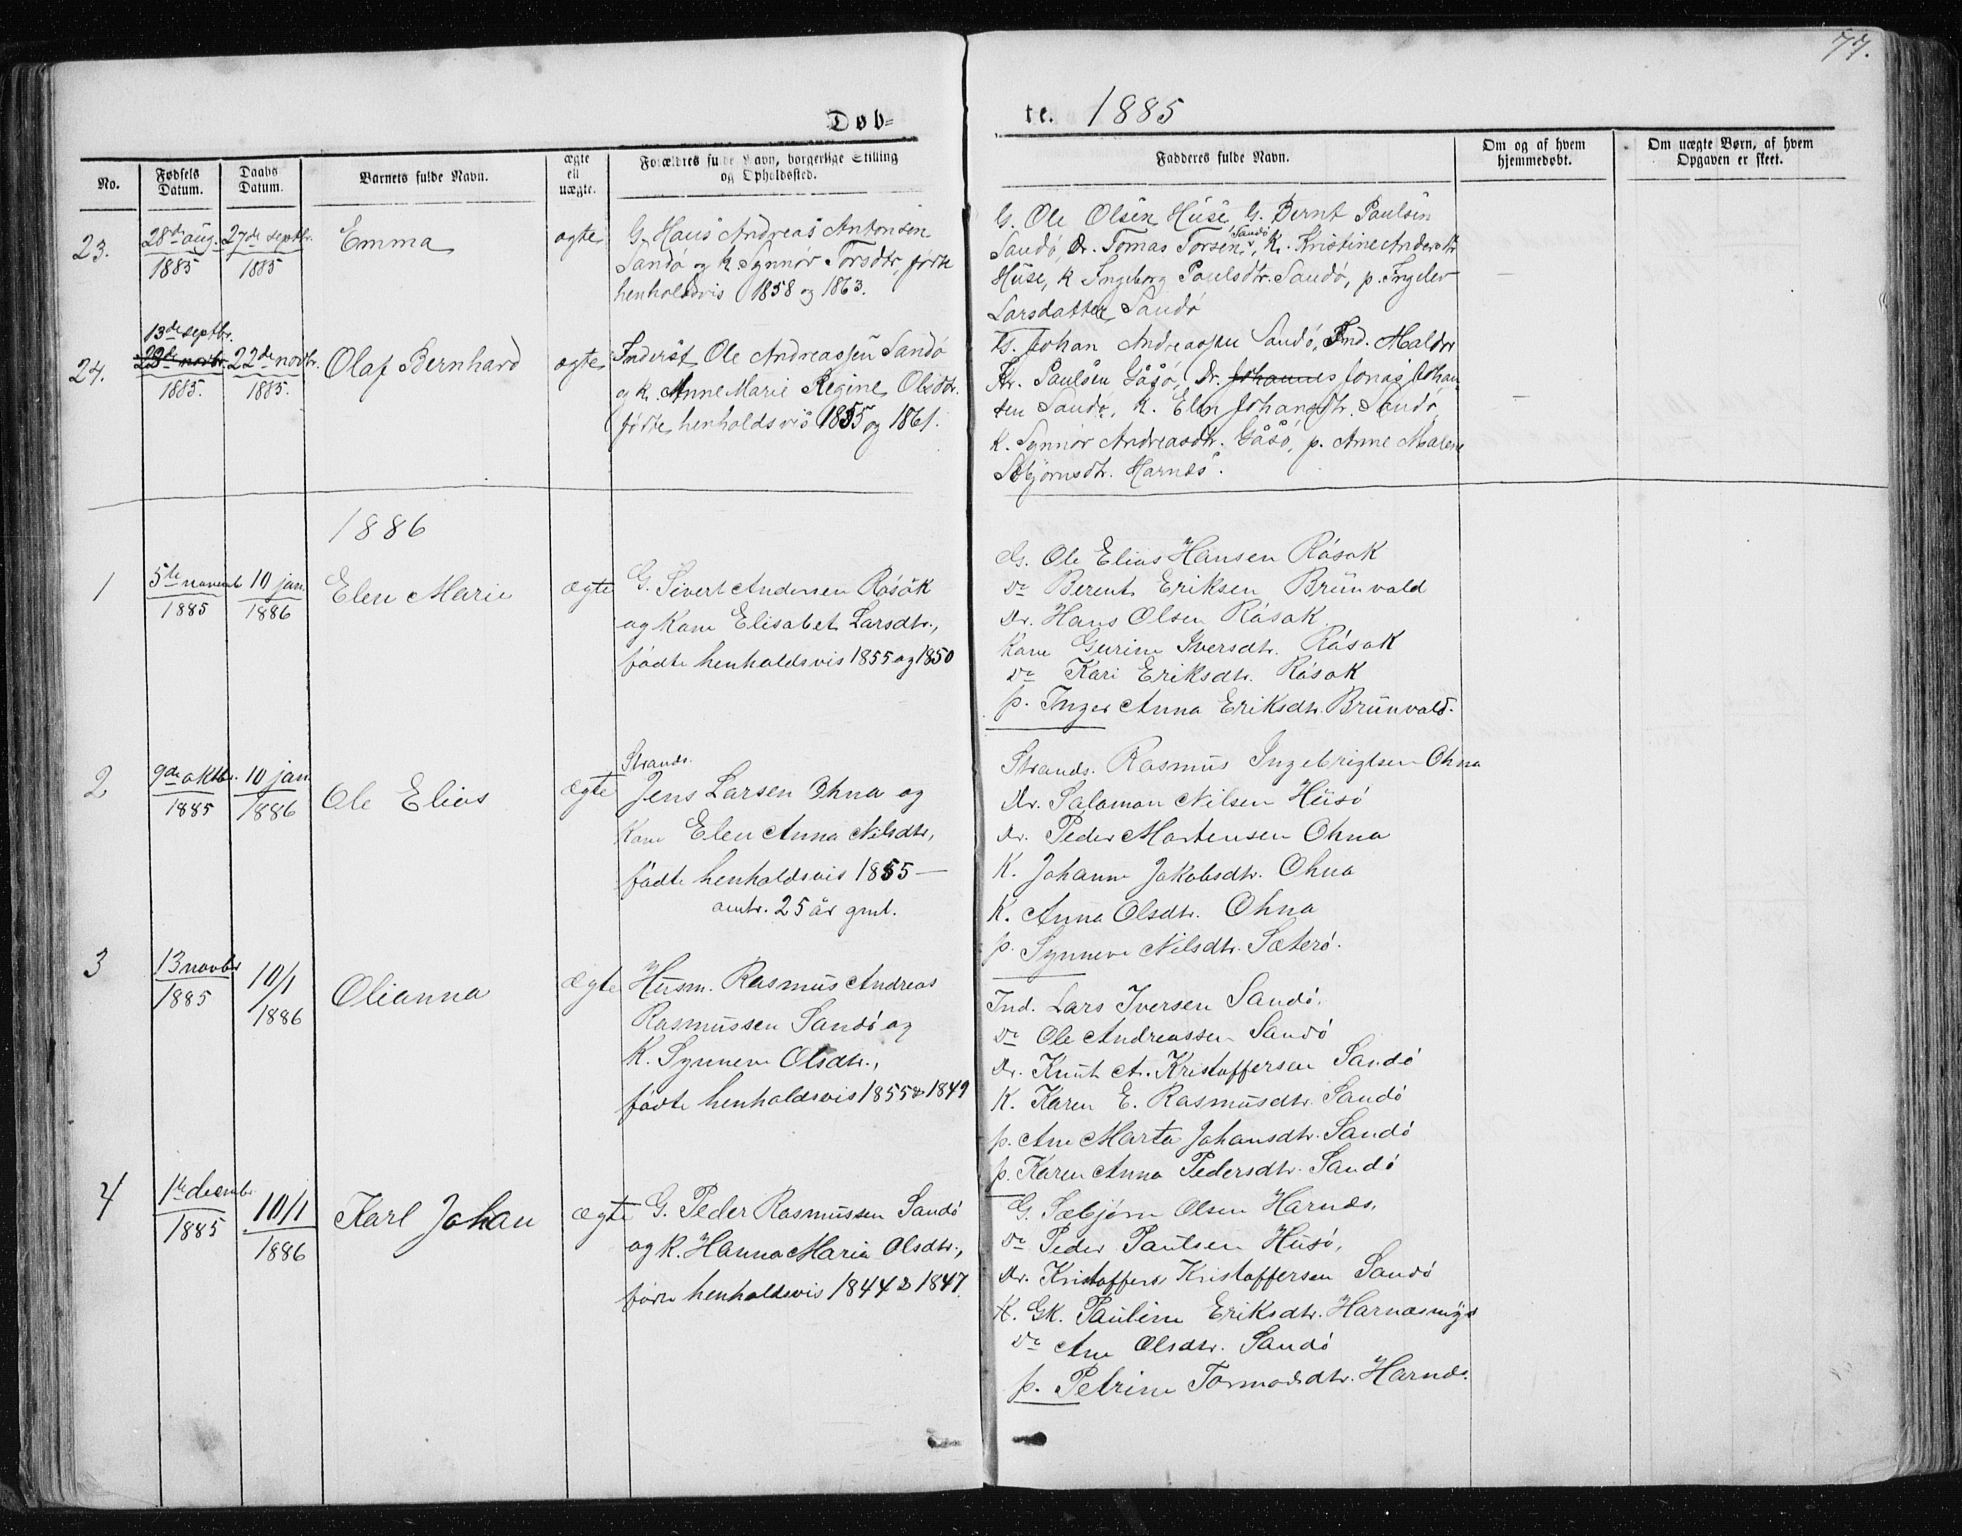 77.
Døb=
te. 1885
No.
Fødsels Datum.
Daabs Datum.
Barnets fulde Navn.
ægte ell uægte.
Forældres fulde Navn, borgerlige Stilling og Opholdssted.
Fadderes fulde Navn.
Om og af hvem hjemmedøbt.
Om uægte Børn, af hvem Opgaven er skeet.
23.
28de aug. 1885
27de septbr. 1885
Emma
ægte
G. Hans Andreas Antonsen
Sandø og K. Synnør Torsdtr, fødte
henholdsvis 1858 og 1863.
G. Ole Olsen Huse, G. Bernt Paulsen
Sandø, Dr. Tomas Torsen Sandø, K. Kristine
Huse, K Ingeborg Paulsdtr. Sandø, p.
Larsdatter Sandø
24.
13de septbr.
22de novbr. 1885.
22de novbr. 1885.
Olaf Bernhard
ægte
Inderst Ole Andreassen Sandø
og K. Anne Marie Regine Olsdtr.
fødte henholdsvis 1855 og 1861.
Johan Andreassen Sandø, Ind. Haldor
Paulsen Gåsø, Dr. Johannes Jonas Johan-
sen Sandø, K. Elen Johansdtr. Sandø,
K. Synnør Andreasdtr. Gåsø, p. Anne Malene
Sæbjørnsdtr. Harnes.
1886
1
5te novemb 1885
10 jan. 1886
Elen Marie
ægte
G. Sivert Andersen Røsok
og Kone Elisabet Larsdtr.,
fødte henholdsvis 1855 og 1850
G. Ole Elias Hansen Røsok
Do Berent Eriksen Brünvald
Dr. Hans Olsen Røsok
Kone Gurine Iversdtr. Røsok
Do Kari Eriksdtr. Røsok
p. Inger Anna Eriksdtr. Brünvald.
2
9de oktbr. 1885
10 jan. 1886
Ole Elias
ægte
Strands.
Jens Larsen Ohna og
Kone Elen Anna Nilsdtr,
fødte henholdsvis 1855 —
omtr. 25 år gml.
Strands. Rasmus Ingebrigtsen Ohna
Dr. Salomon Nilsen Husø
Dr. Peder Mortensen Ohna
K. Johanne Jakobsdtr. Ohna
K. Anna Olsdtr. Ohna
p. Synneve Nilsdtr. Sæterø.
3
13 novbr 1885
10/1 1886
Olianna
ægte
Husm. Rasmus Andreas
Rasmussen Sandø og
K. Synneve Olsdtr.,
fødte henholdsvis 1855 & 1849
Ind. Lars Iversen Sandø.
Do Ole Andreassen Sandø
Dr. Knut A. Kristoffersen Sandø
K. Karen E. Rasmusdtr. Sandø
p. Ane Marta Johansdtr. Sandø
p. Karen Anna Pedersdtr. Sandø
4
1te decembr 1885
10/1 1886
Karl Johan
ægte
G. Peder Rasmussen Sandø
og K. Hanna Maria Olsdtr.,
fødte henholdsvis 1844 & 1847.
G. Sæbjørn Olsen Harnes.
Do Peder Paulsen Husø,
Dr. Kristoffer Kristoffersen Sandø
K. Gk. Pauline Eriksdtr. Harnæsmyr
Do Ane Olsdtr. Sandø
p. Petrine Tormodsdtr. Harnes.